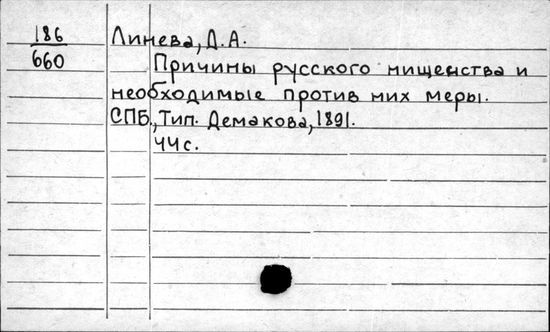 186
660
Линева, Д.А.
Причины русского нищенства и
необходимые против них меры.
СПБ., Тип. Демакова, 1891.
44с.